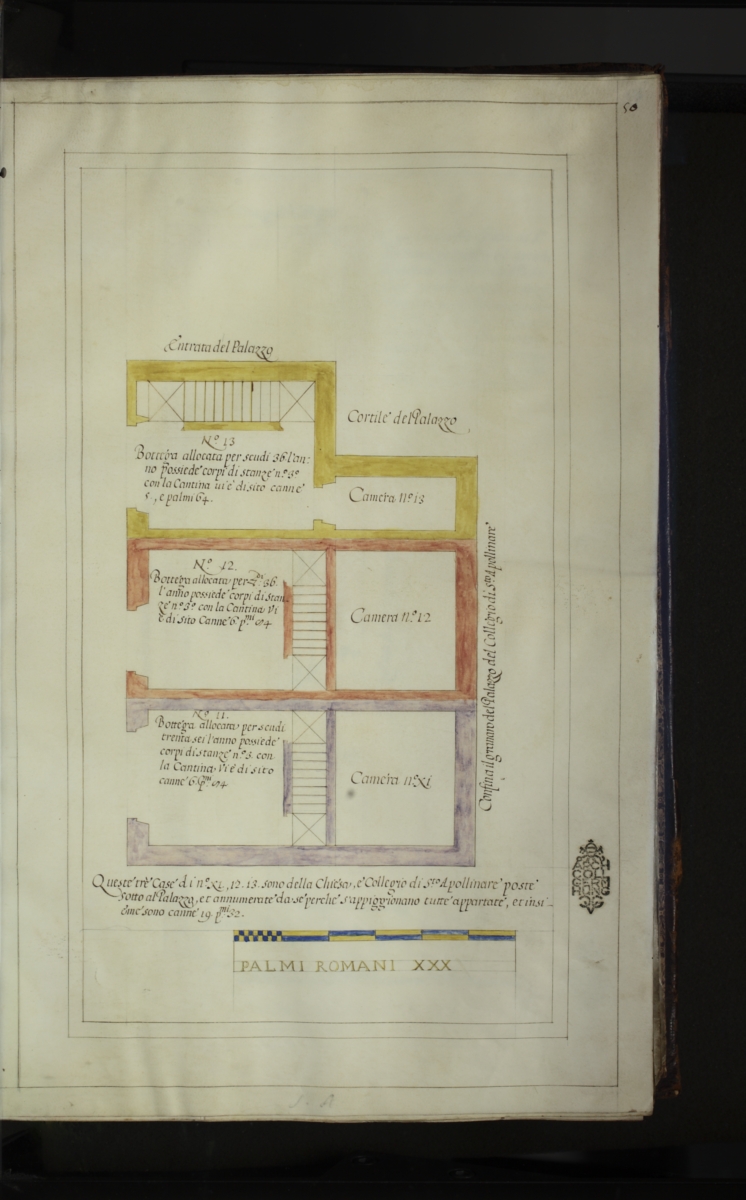 50
Entrata del Palazzo
Cortile del Palazzo
Nº. 13
Bottega allocata per scudi 36 l'an:
no possiede corpi di stanze n.º 3º
con la Cantina vi è di sito canne
5., e palmi 64.
Camera n.º 13
Nº. 12.
Bottega allocata per 36
l'anno possiede corpi di Stan-
ze n.º 3º con la Cantina Vi
è di sito Canne 6 p.mi 94
Camera n.º 12
Nº. 11.
Bottega allocata per scudi
trenta sei l'anno possiede
corpi di stanze n.º 3. con
la Cantina Vi è di sito
canne 6 p.mi 94
Camera nº xi
Confina il granaro del Palazzo del Collegio di S.to Apollinare
Queste trè Case di nº. xi., 12. 13. sono della Chiesa, e Collegio di S.to Apollinare poste
Sotto al Palazzo, et annumerate da se perche s'appiggionano tutte appartate, et insi-
eme sono canne 19. p.mi 52.
PALMI ROMANI XXX